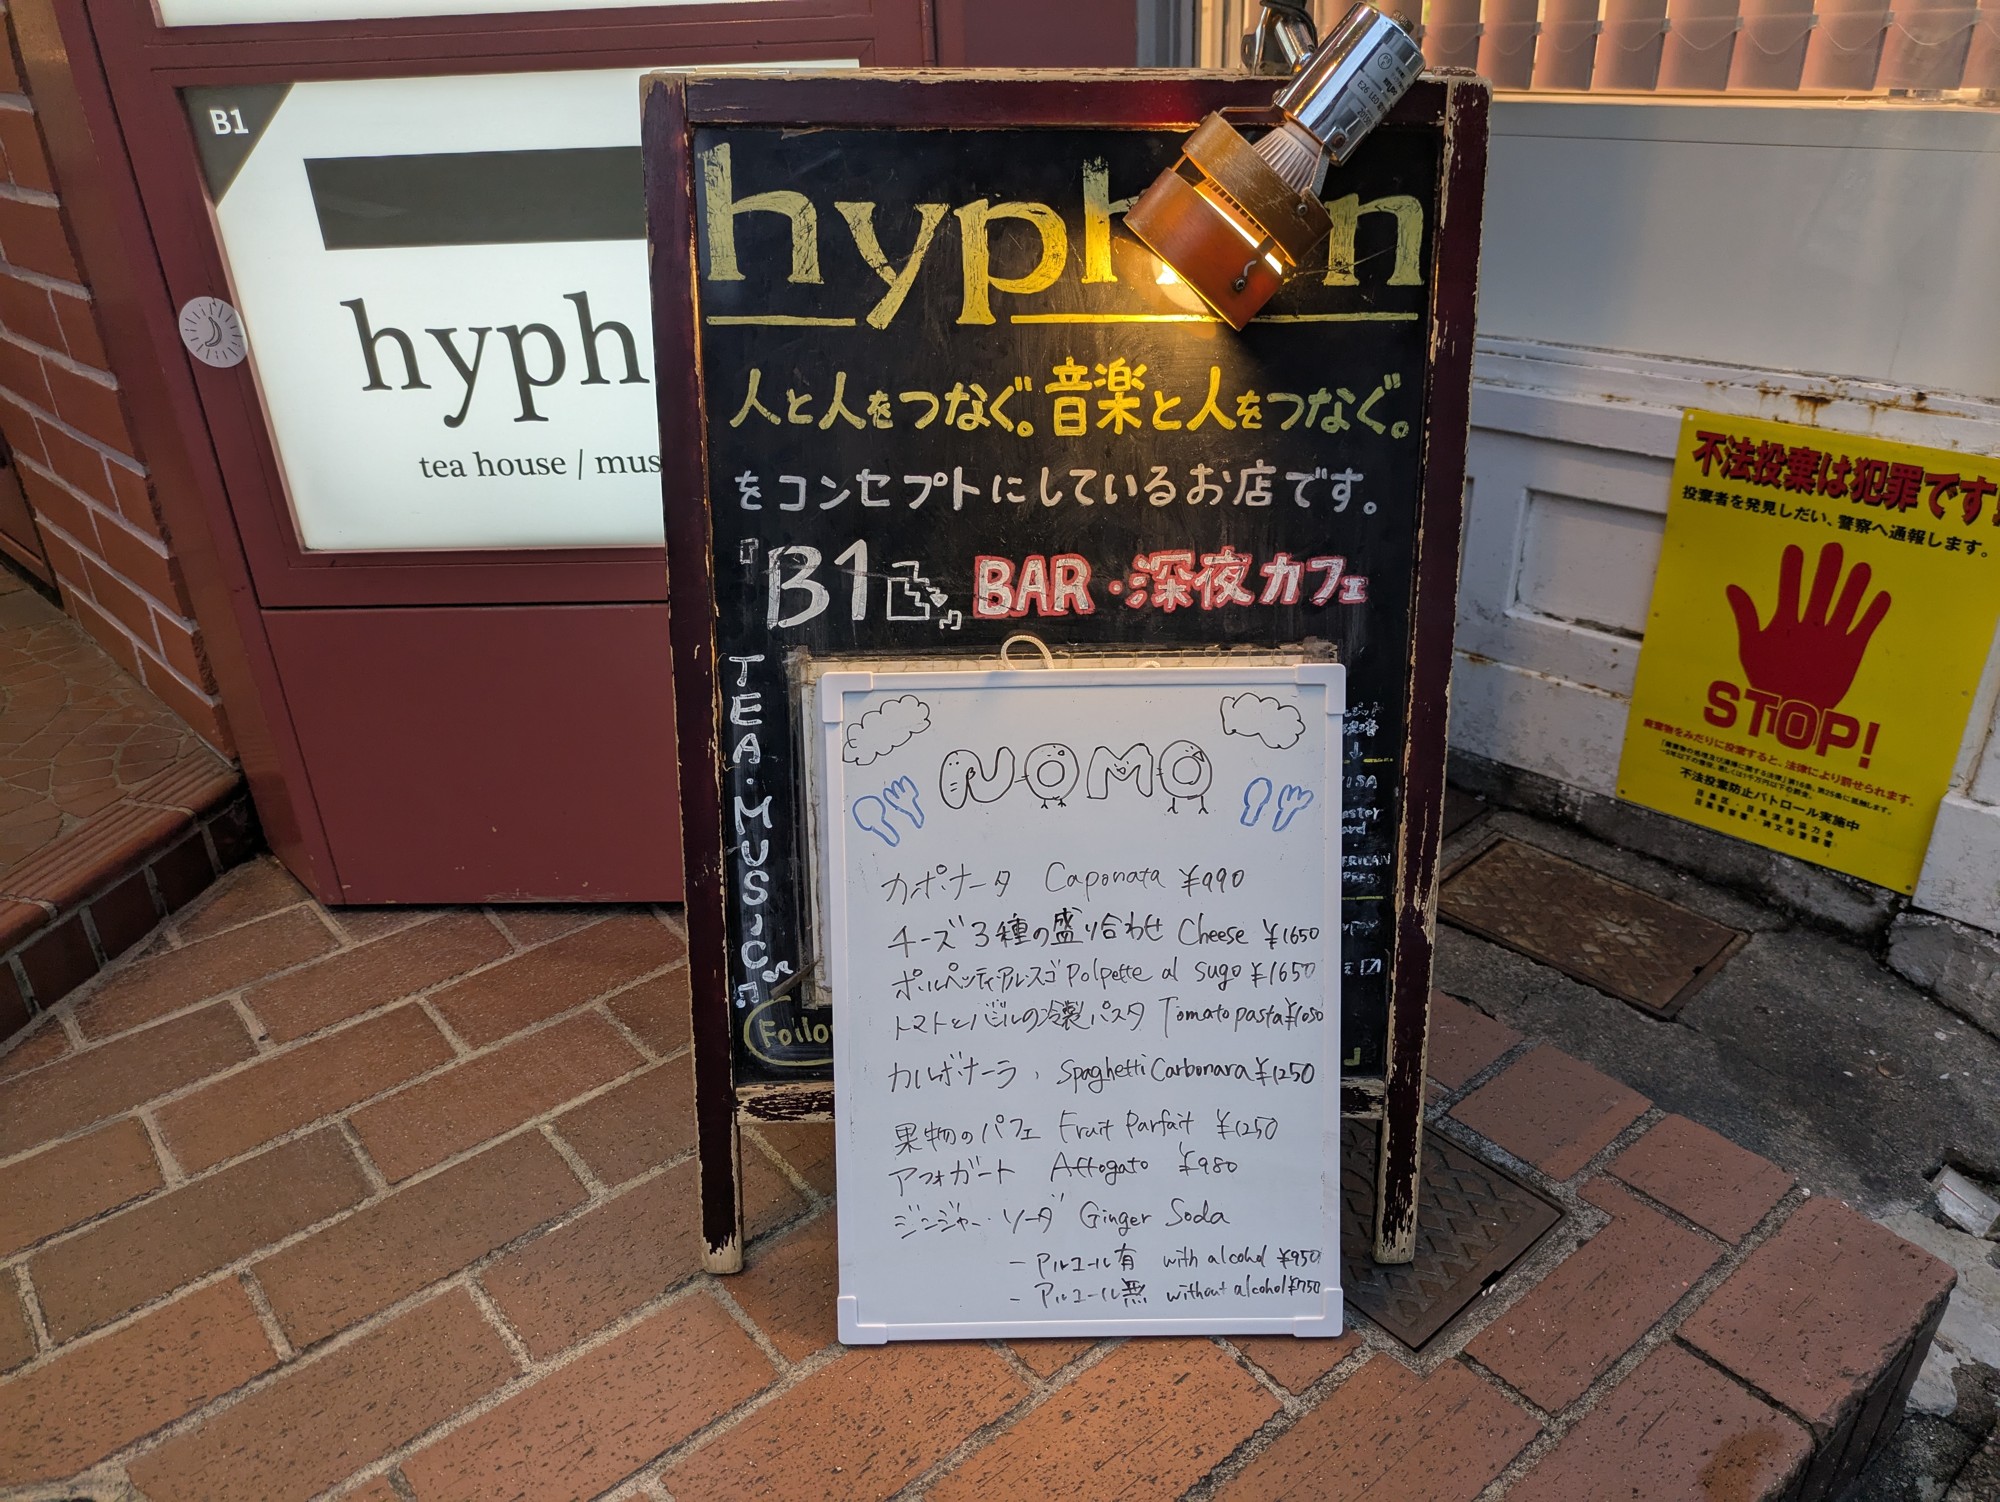 B1
hyph
tea house / mus
hyphen
人と人をつなぐ。音楽と人をつなぐ。
をコンセプトにしているお店です。
『B1』 BAR・深夜カフェ
TEA・MUSIC
Follo
NOMO
カポナータ Caponata ¥990
チーズ3種の盛り合わせ Cheese ¥1650
ポルペッティ・アル・スーゴ Polpette al sugo ¥1650
トマトとバジルの冷製パスタ Tomato pasta ¥1050
カルボナーラ Spaghetti Carbonara ¥1250
果物のパフェ Fruit Parfait ¥1250
アフォガート Affogato ¥980
ジンジャー・ソーダ Ginger Soda
- アルコール有 with alcohol ¥950
- アルコール無 without alcohol ¥750
不法投棄は犯罪です!
投棄者を発見しだい、警察へ通報します。
STOP!
廃棄物をみだりに投棄すると、法律により罰せられます。
不法投棄防止パトロール実施中